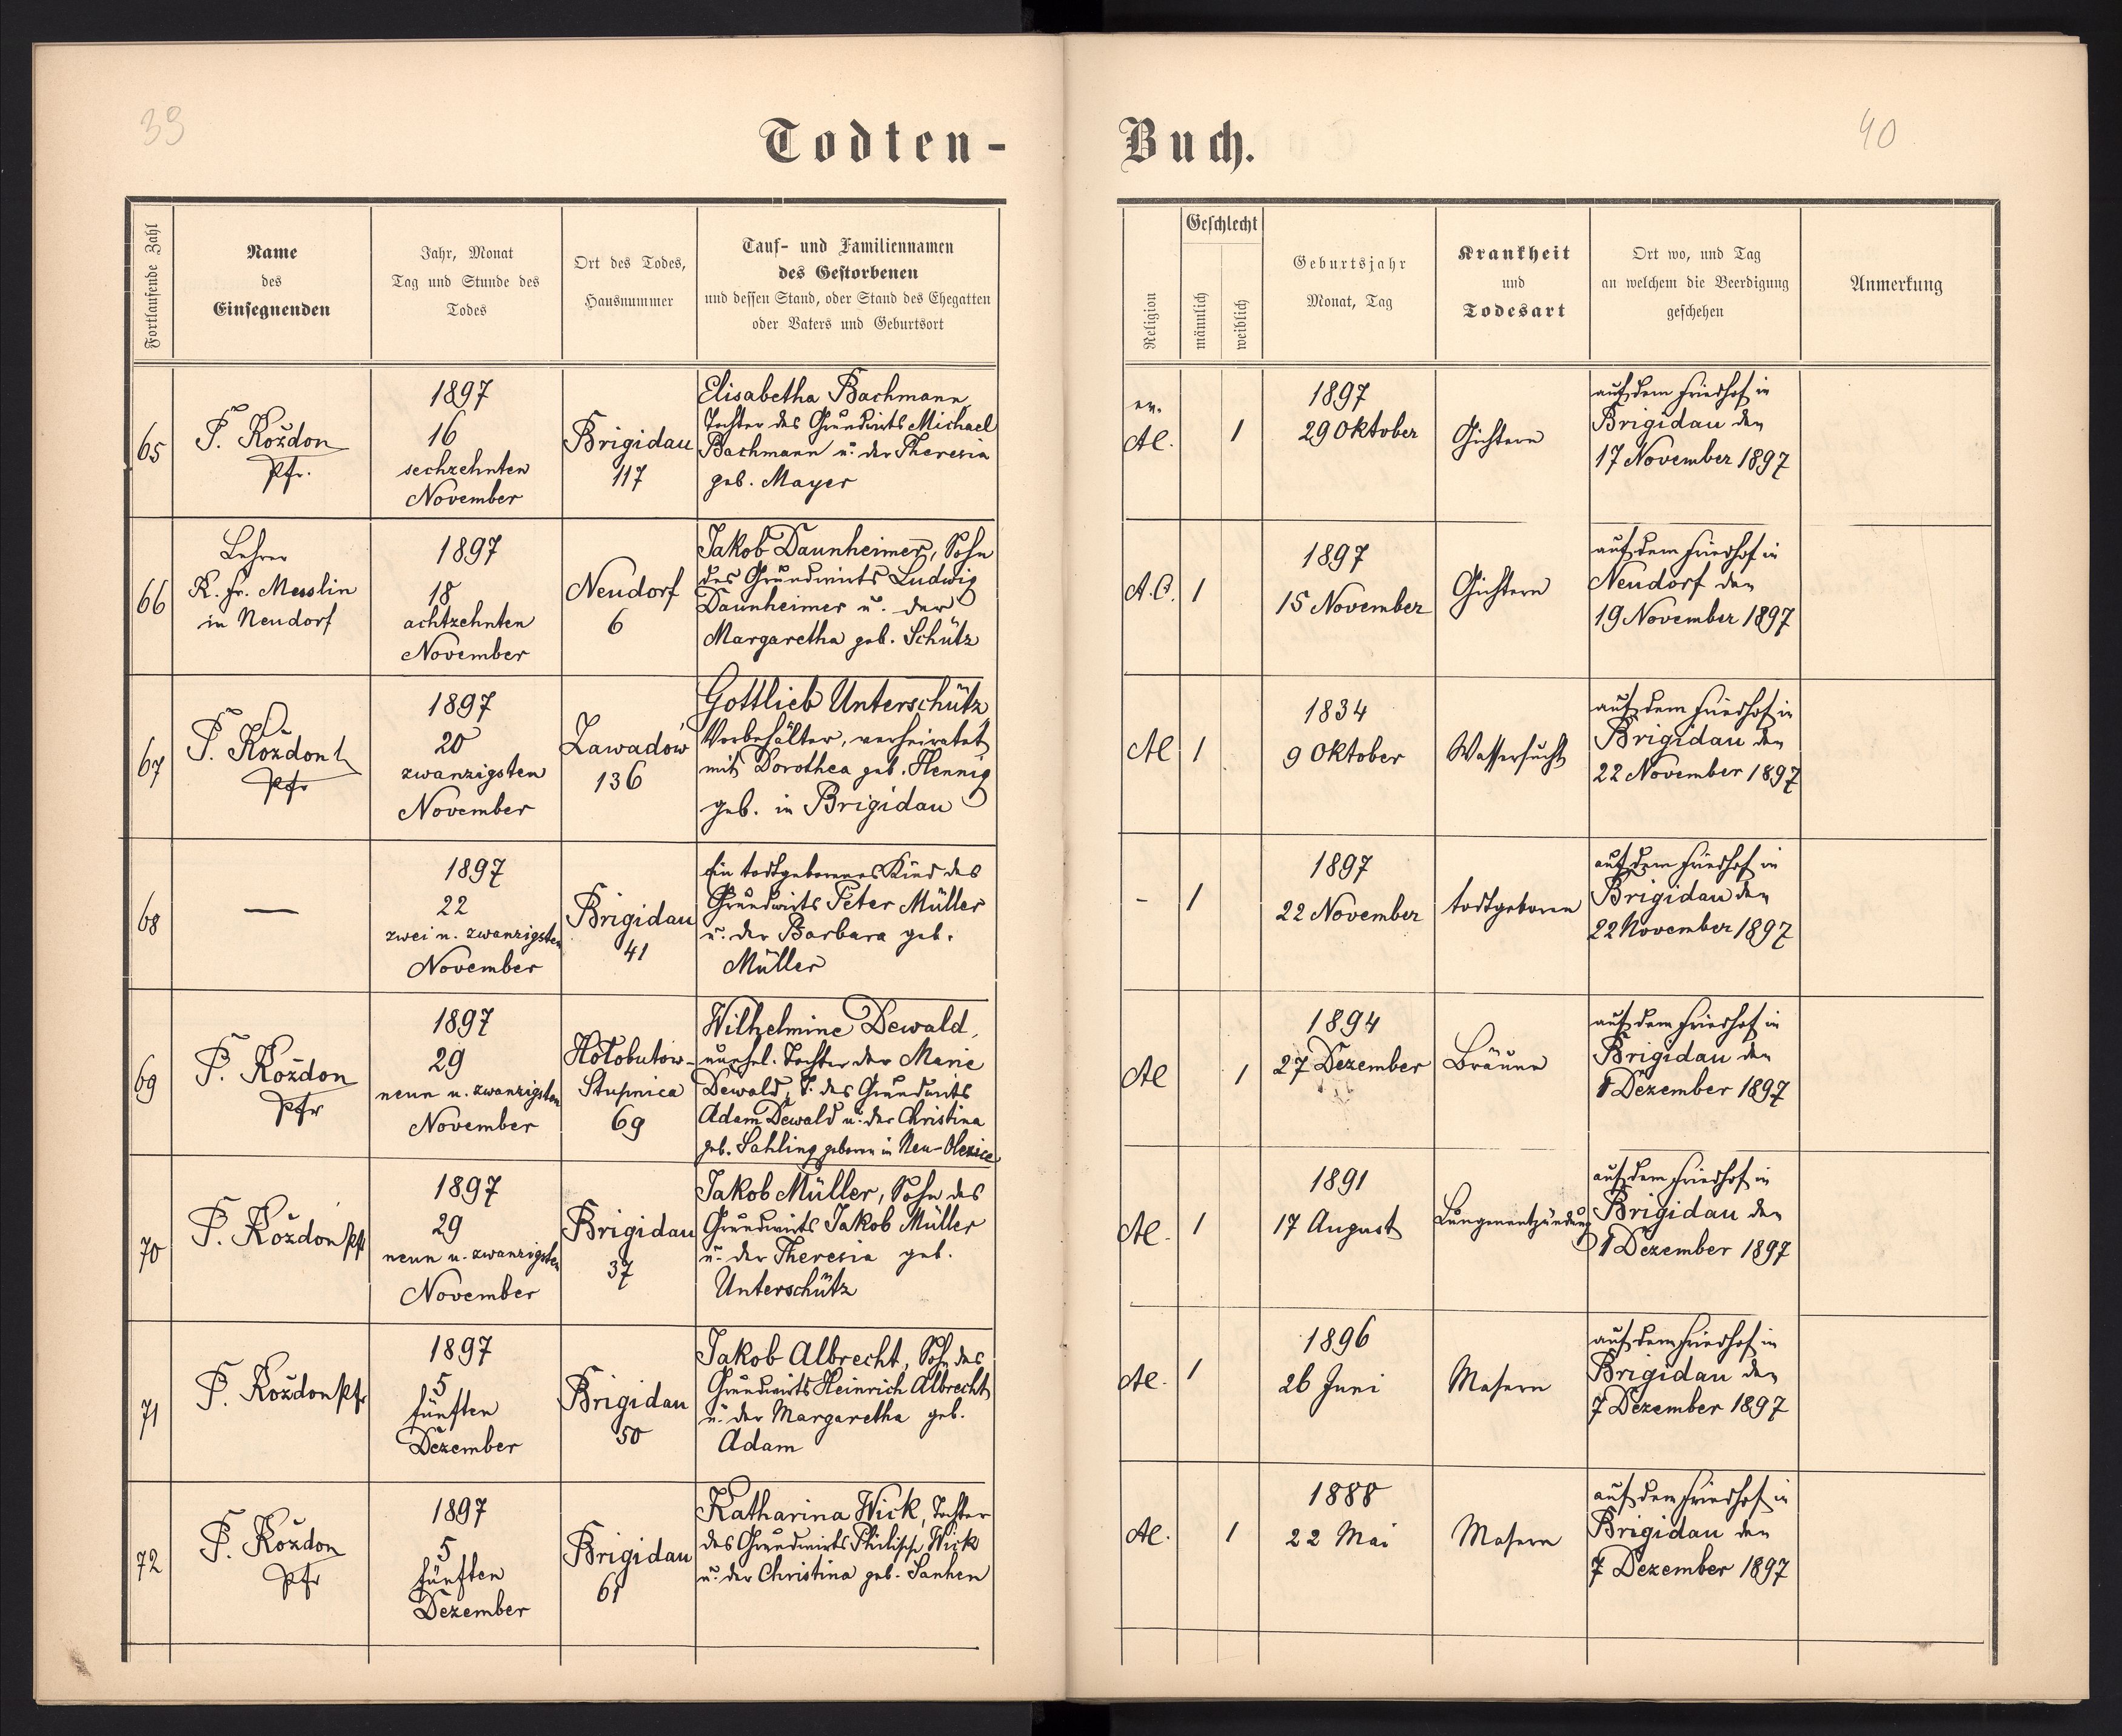 39
Todten-
Fortlaufende Zahl
Name
des
Einsegnenden
Jahr, Monat
Tag und Stunde des
Todes
Ort des Todes,
Hausnummer
Tauf- und Familiennamen
des Gestorbenen
und dessen Stand, oder Stand des Ehegatten
oder Vaters und Geburtsort
65
F. Koždon
Pfr.
1897
16
sechzehnten
November
Brigidau
117
Elisabetha Bachmann
Tochter des Grundwirts Michael
Bachmann u. der Theresia
geb. Mayer
66
Lehrer
K. Fr. Messlin
in Neudorf
1897
18
achtzehnten
November
Neudorf
6
Jakob Daunheimer, Sohn
des Grundwirts Ludwig
Daunheimer u. der
Margaretha geb. Schütz
67
F. Koždon
Pfr
1897
20
zwanzigsten
November
Zawadów
136
Gottlieb Unterschütz
Vorbehälter, verheiratet
mit Dorothea geb. Hennig
geb. in Brigidau
68
—
1897
22
zwei u. zwanzigsten
November
Brigidau
41
Ein todtgeborenes Kind des
Grundwirts Peter Müller
u. der Barbara geb.
Müller
69
F. Koždon
Pfr
1897
29
neun u. zwanzigsten
November
Hołobutów-
Stupnica
69
Wilhelmine Dewald,
unehel. Tochter der Marie
Dewald, T. des Grundwirts
Adam Dewald u. der Christina
geb. Sahling geboren in Neu-
70
F. Koždon Pfr
1897
29
neun u. zwanzigsten
November
Brigidau
37
Jakob Müller, Sohn des
Grundwirts Jakob Müller
u. der Theresia geb.
Unterschütz
71
F. Koždon Pfr
1897
5
fünften
Dezember
Brigidau
50
Jakob Albrecht, Sohn des
Grundwirts Heinrich Albrecht
u. der Margaretha geb.
Adam
72
F. Koždon
Pfr
1897
5
fünften
Dezember
Brigidau
61
Katharina Wick, Tochter
des Grundwirts Philipp Wick
u. der Christina geb. Sanhen
40
Buch.
Religion
Geschlecht
männlich
weiblich
Geburtsjahr
Monat, Tag
Krankheit
und
Todesart
Ort wo, und Tag
an welchem die Beerdigung
geschehen
Anmerkung
ev.
AC.
1
1897
29 Oktober
Gichtern
auf dem Friedhof in
Brigidau den
17 November 1897
A.C.
1
1897
15 November
Gichtern
auf dem Friedhof in
Neudorf den
19 November 1897
AC
1
1834
9 Oktober
Wassersucht
auf dem Friedhof in
Brigidau den
22 November 1897
-
1
1897
22 November
todtgeboren
auf dem Friedhof in
Brigidau den
22 November 1897
AC
1
1894
27 Dezember
Bräune
auf dem Friedhof in
Brigidau den
1 Dezember 1897
AC.
1
1891
17 August
Lungenentzündung
auf dem Friedhof in
Brigidau den
1 Dezember 1897
AC.
1
1896
26 Juni
Masern
auf dem Friedhof in
Brigidau den
7 Dezember 1897
AC.
1
1888
22 Mai
Masern
auf dem Friedhof in
Brigidau den
7 Dezember 1897